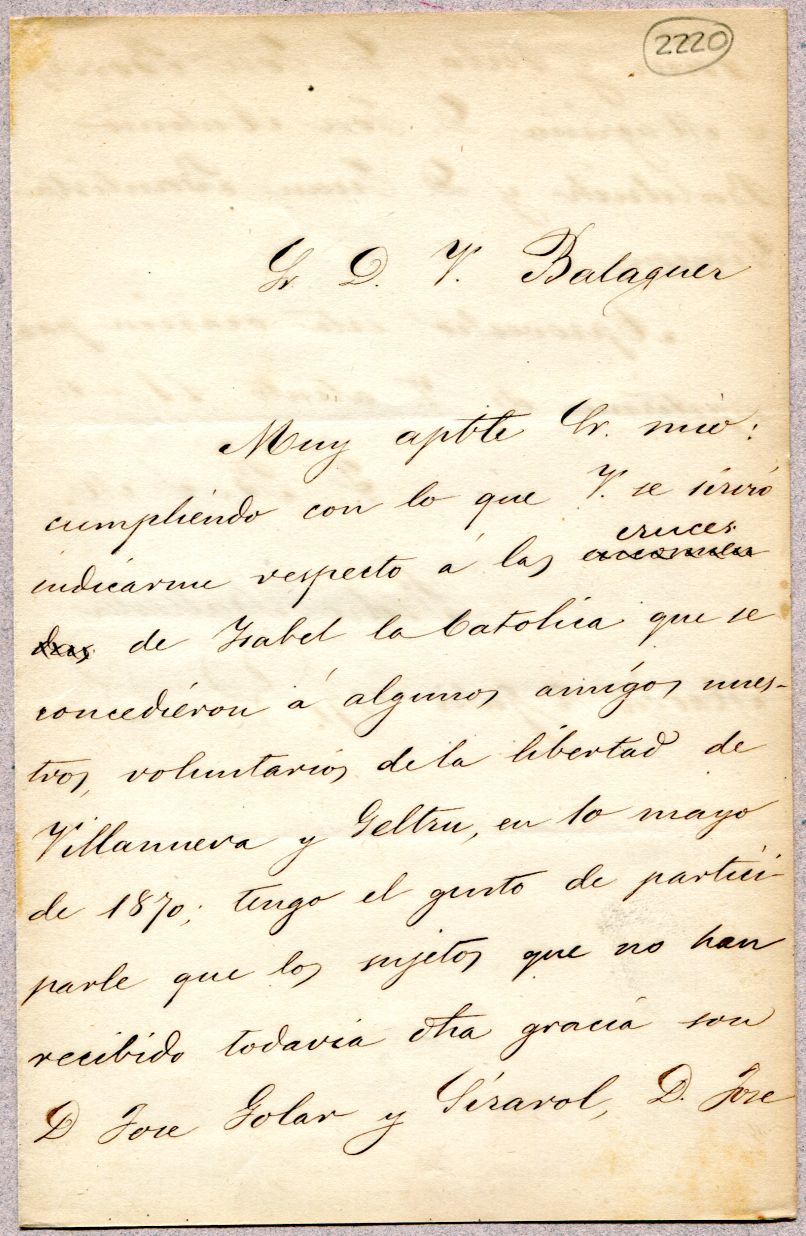 2220
Sr D. V. Balaguer
Muy aptble Sr. mio:
cumpliendo con lo que V. se sirvió
cruces
indicarme respecto á las encomien
das de Isabel la Catolica que se
concedieron á algunos amigos nues-
tros, voluntarios de la libertad de
Villanueva y Geltru, en 10 mayo
de 1870; tengo el gusto de partici-
parle que los sujetos que no han
recibido todavia otra gracia son
D Jose Golar y Sirarol, D. Jose